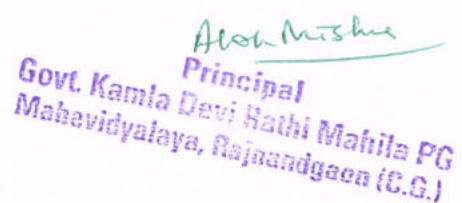 Alok Mishra
Principal
Govt. Kamla Devi Rathi Mahila PG
Mahavidyalaya, Rajnandgaon (C.G.)